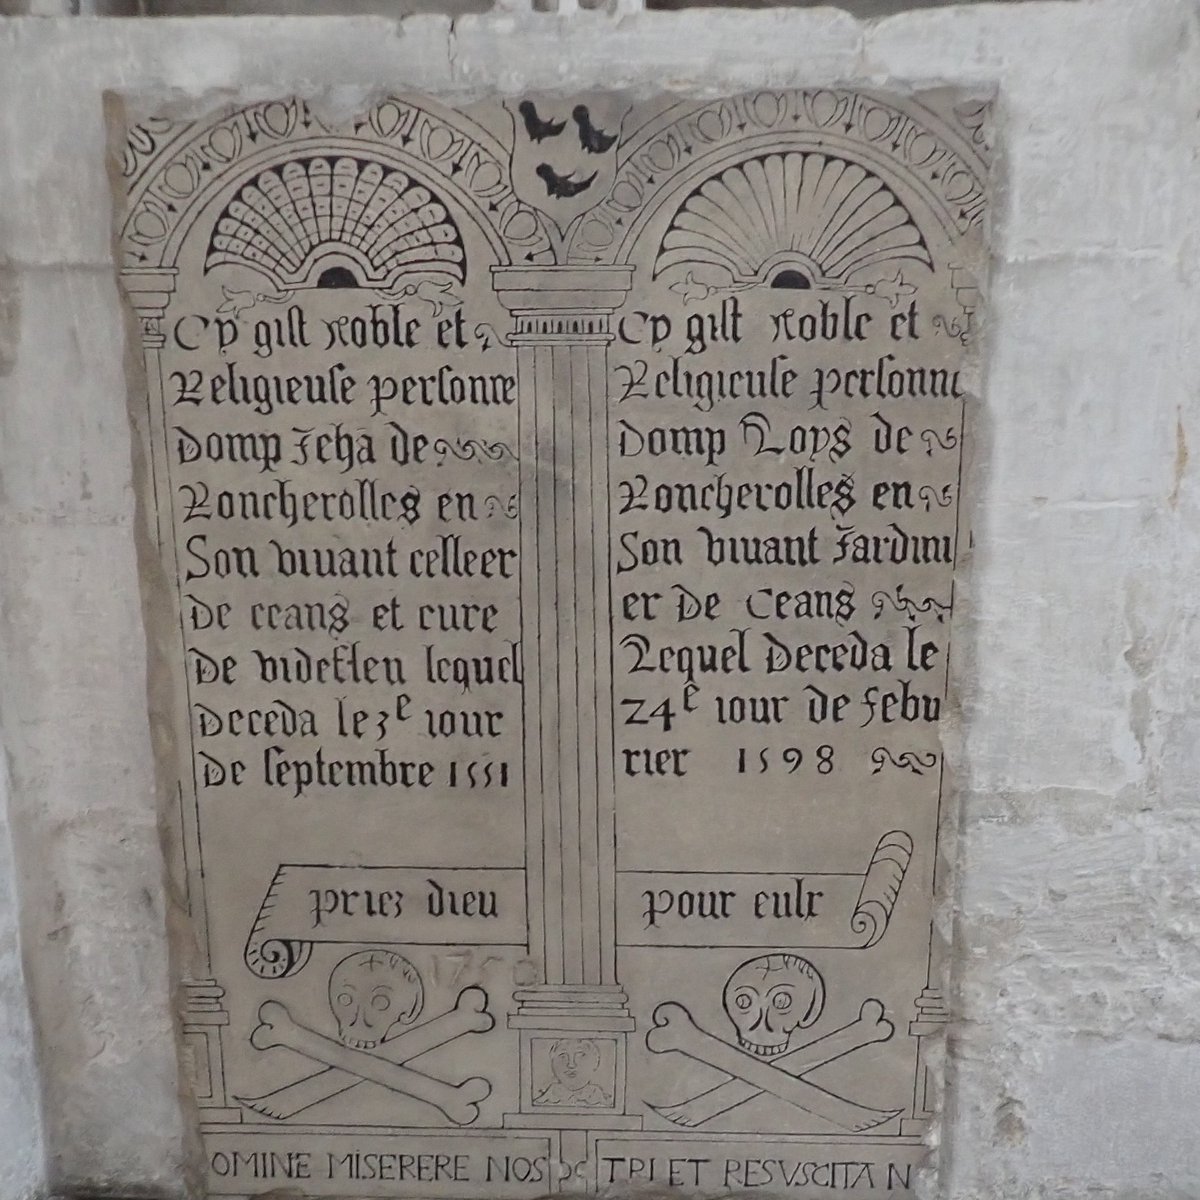 Cy gist noble et
Religieuse personne
Domp Jehã de
Roncherolles en
Son viuant celleer
De ceans et cure
De lequel
Deceda le 3e iour
De septembre 1551
Cy gist noble et
Religieuse personne
Domp Loys de
Roncherolles en
Son viuant Jardini
er De Ceans
Lequel Deceda le
24e iour de febu
rier 1598
priez dieu pour eulx
OMINE MISERERE NOS TRI ET RESVSCITA N